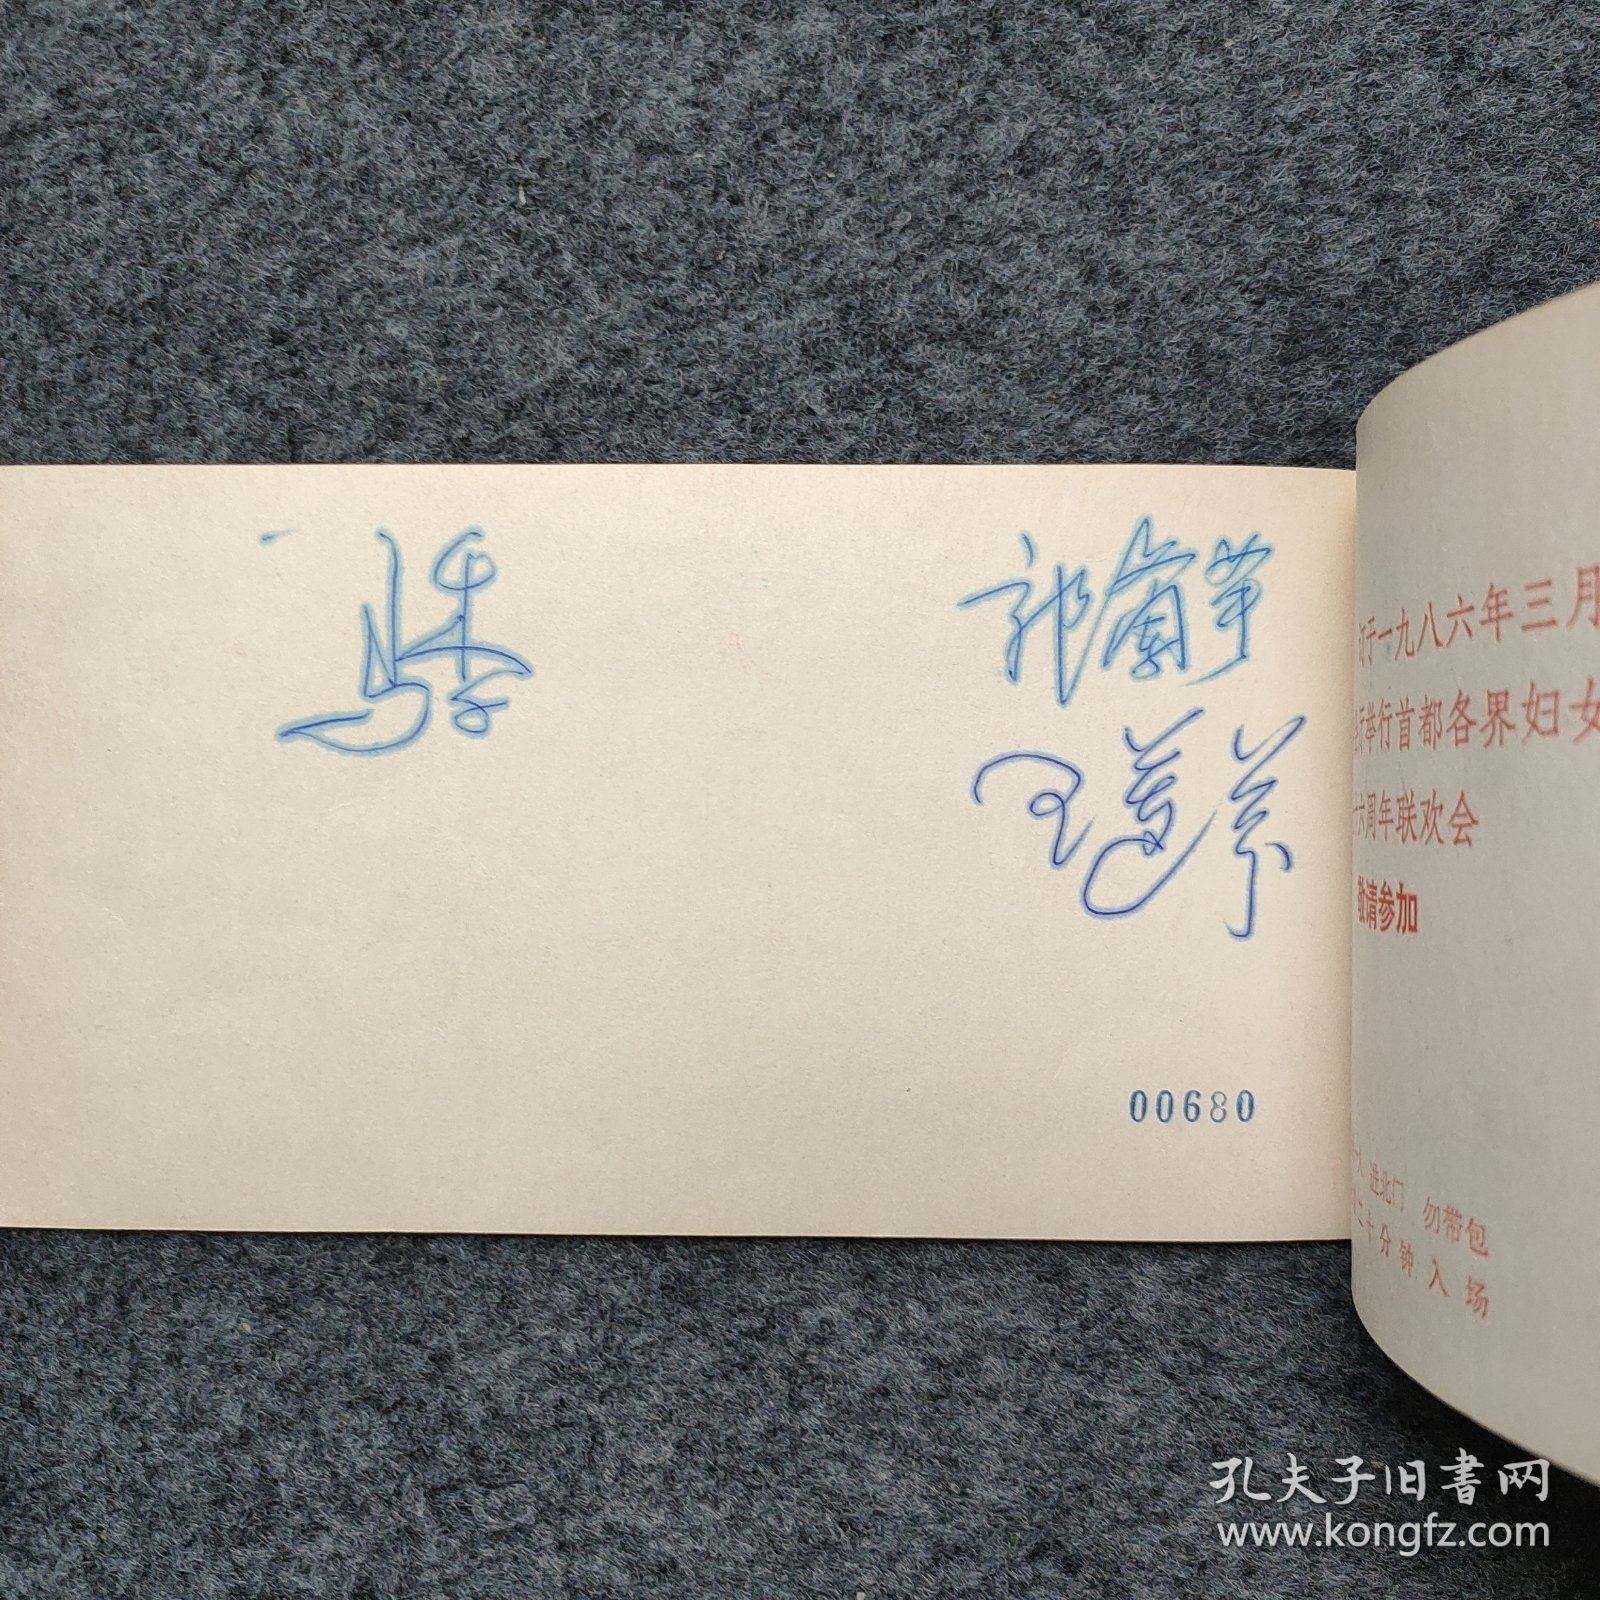 郭兰英
00680
于一九八六年三月
举行首都各界妇女
六周年联欢会
敬请参加
进北门 勿带包
二十分钟入场
孔夫子旧书网
www.kongfz.com